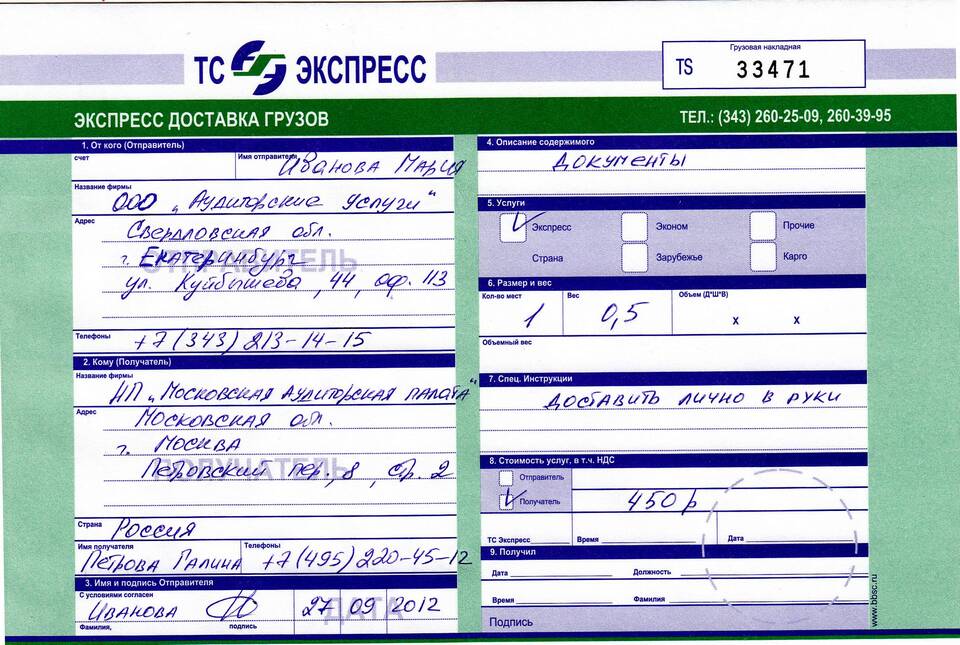 ТС ЭКСПРЕСС
Грузовая накладная
TS 33471
ЭКСПРЕСС ДОСТАВКА ГРУЗОВ
ТЕЛ.: (343) 260-25-09, 260-39-95
1. От кого (Отправитель)
счет
Имя отправителя
Иванова Мария
Название фирмы
ООО „Аудиторские услуги"
Адрес
Свердловская обл.
г. Екатеринбург
ОТПРАВИТЕЛЬ
ул. Куйбышева, 44, оф. 113
Телефоны
+7(343) 213-14-15
2. Кому (Получатель)
Название фирмы
НП „Московская Аудиторская палата"
Адрес
Московская обл.
г. Москва
ПОЛУЧАТЕЛЬ
Петровский пер., 8, стр. 2
Страна
Россия
Имя получателя
Петрова Галина
Телефоны
+7(495) 220-45-12
3. Имя и подпись Отправителя
С условиями согласен
Иванова
27 09 2012
ДАТА
Фамилия, подпись
4. Описание содержимого
Документы
5. Услуги
Экспресс
Эконом
Прочие
Страна
Зарубежье
Карго
6. Размер и вес
Кол-во мест
1
Вес
0,5
Объем (Д*Ш*В)
х х
Объемный вес
7. Спец. Инструкции
доставить лично в руки
8. Стоимость услуг, в т.ч. НДС
Отправитель
Получатель
450 р
ТС Экспресс
Время
Дата
9. Получил
Дата
Должность
Время
Фамилия
Подпись
www.bbsc.ru